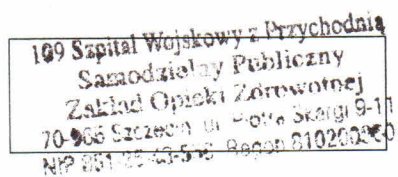 109 Szpital Wojskowy z Przychodnią
Samodzielny Publiczny
Zakład Opieki Zdrowotnej
70-965 Szczecin ul. Piotra Skargi 9-11
NIP Regon